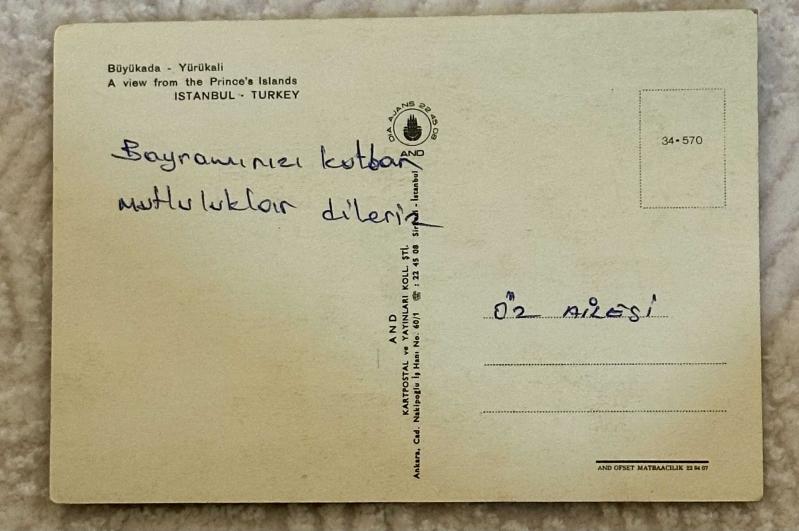 Büyükada - Yürükali
A view from the Prince's Islands
ISTANBUL - TURKEY
Bayramınızı kutlar
mutluluklar dileriz
DİA AJANS 22 45 08
AND
34-570
AND
KARTPOSTAL ve YAYINLARI KOLL. ŞTİ.
Ankara, Cad. Nakipoğlu İş Hanı No. 60/1 ☎ : 22 45 08 Sirkeci - İstanbul
ÖZ AİLESİ
AND OFSET MATBAACILIK 22 84 07